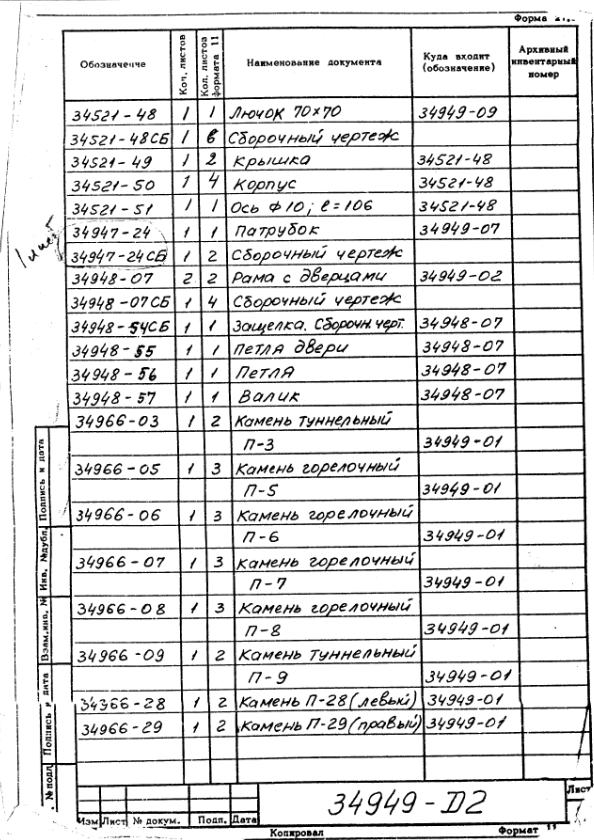 Форма
Обозначение Кол. листов Кол. листов формата 11 Наименование документа Куда входит (обозначение) Архивный инвентарный номер
34521-48 1 1 Лючок 70×70 34949-09
34521-48СБ 1 8 Сборочный чертеж
34521-49 1 2 Крышка 34521-48
34521-50 1 4 Корпус 34521-48
34521-51 1 1 Ось Ф10; ℓ=106 34521-48
1 лист
34947-24 1 1 Патрубок 34949-07
34947-24СБ 1 2 Сборочный чертеж
34948-07 2 2 Рама с дверцами 34949-02
34948-07СБ 1 4 Сборочный чертеж
34948-54СБ 1 1 Защелка. Сборочн. черт. 34948-07
34948-55 1 1 Петля двери 34948-07
34948-56 1 1 Петля 34948-07
34948-57 1 1 Валик 34948-07
34966-03 1 2 Камень туннельный
П-3 34949-01
34966-05 1 3 Камень горелочный
П-5 34949-01
34966-06 1 3 Камень горелочный
П-6 34949-01
34966-07 1 3 Камень горелочный
П-7 34949-01
34966-08 1 3 Камень горелочный
П-8 34949-01
34966-09 1 2 Камень туннельный
П-9 34949-01
34966-28 1 2 Камень П-28 (левый) 34949-01
34966-29 1 2 Камень П-29 (правый) 34949-01
Подпись и дата
Инв. № дубл.
Взам. инв. №
Подпись и дата
№ подл
34949-D2
Лист
Изм Лист № докум. Подп. Дата
Копировал Формат 11